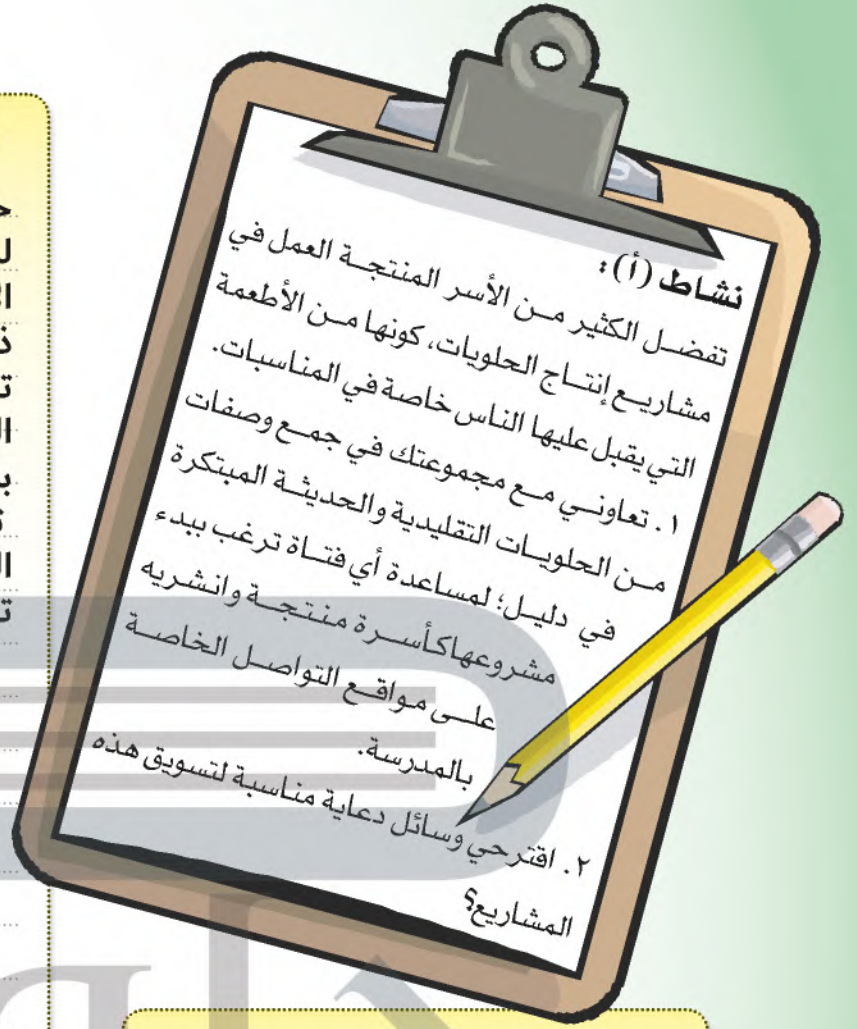 نشاط (أ) :
تفضل الكثير من الأسر المنتجة العمل في
مشاريع إنتاج الحلويات، كونها من الأطعمة
التي يقبل عليها الناس خاصة في المناسبات.
١. تعاوني مع مجموعتك في جمع وصفات
من الحلويات التقليدية والحديثة المبتكرة
في دليل؛ لمساعدة أي فتاة ترغب ببدء
مشروعهاكأسرة منتجة وانشريه
على مواقع التواصل الخاصة
بالمدرسة.
٢. اقترحي وسائل دعاية مناسبة لتسويق هذه
المشاريع؟